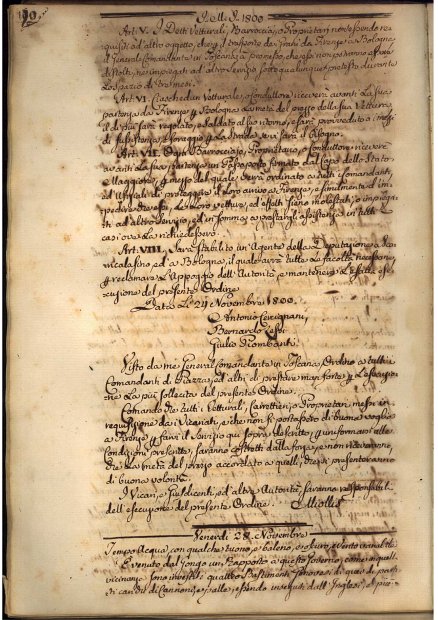 Dell'A. 1800
Art. V. I Detti Vetturali, Barrocciaj, o Proprietarj non essendo re=
quisiti ad altro oggetto, che per il trasporto dei Grani da Firenze a Bologna,
il Generale Comandante in Toscana promesso, che essi non potranno essere
distolti, ne impiegati ad altro Servizio sotto qualunque pretesto durante
Lo spazio di tre mesi.
Art. VI. Ciaschedun Vetturale, o Conduttore riceverà avanti La sua
partenza da Firenze per Bologna La metà del prezzo della sua Vettura,
il di più sarà regolato, e saldato al suo ritorno, e sarà provveduto ai mezzi
di sussistenza, e foraggio per La strada, se vi sarà il bisogno.
Art. VII. Ogni Barrocciajo, Proprietario, o Conduttore riceverà
avanti La sua partenza un Passaporto firmato dal Capo dello Stato
Maggiore, per mezzo del quale verrà ordinato ai detti Comandanti,
ed Ufiziali di proteggere il Loro arrivo a Firenze, e finalmente d'im=
pedire che essi, Le Loro vetture, ed effetti sieno molestati, o impiega=
ti ad altro Servizio, ed in somma a prestargli assistenza in tutti i
casi, ove La richiedessero.
Art. VIII. Sarà stabilito un Agente della Deputazione a
ed a Bologna, il quale avrà tutte Le facoltà necessarie
per reclamare L'Appoggio dell'Autorità, e mantenere L'esatta ese=
cuzione del presente Ordine
Dato Li 24 Novembre 1800.
Antonio Cercignani,
Bernardo
Giulio Piombanti.
Visto da me General Comandante in Toscana Ordino a tutti i
Comandanti di Piazza, ed altri di prestare man forte per L'esecuzio=
ne La più sollecita del presente Ordine.
Comando che tutti i Vetturali, Carrettieri, o Proprietarj messi in
requisizione dai Vicariati, e che non si portassero di buona voglia
a Firenze per farvi il Servizio qui sopra descritto, per uniformarsi alle
Condizioni prescritte, saranno costretti dalla forza, e non riceveranno
che La metà del prezzo accordato a quelli, che si presenteranno
di buona volontà.
I Vicarj, e Giusdicenti, ed altre Autorità, saranno responsabili
dell'esecuzione del presente Ordine. Miollis
Venerdì 28. Novembre
Tempo Acqua con qualche tuono, e baleno, e scuro, e Vento variabile
È venuto dal Longo un rapporto a questo Governo, come in quelle
vicinanze sono investiti quattro Bastimenti Genovesi di quei da parti=
ti carichi di Cannoni, e palle, essendo inseguiti dall'Inglesi, e